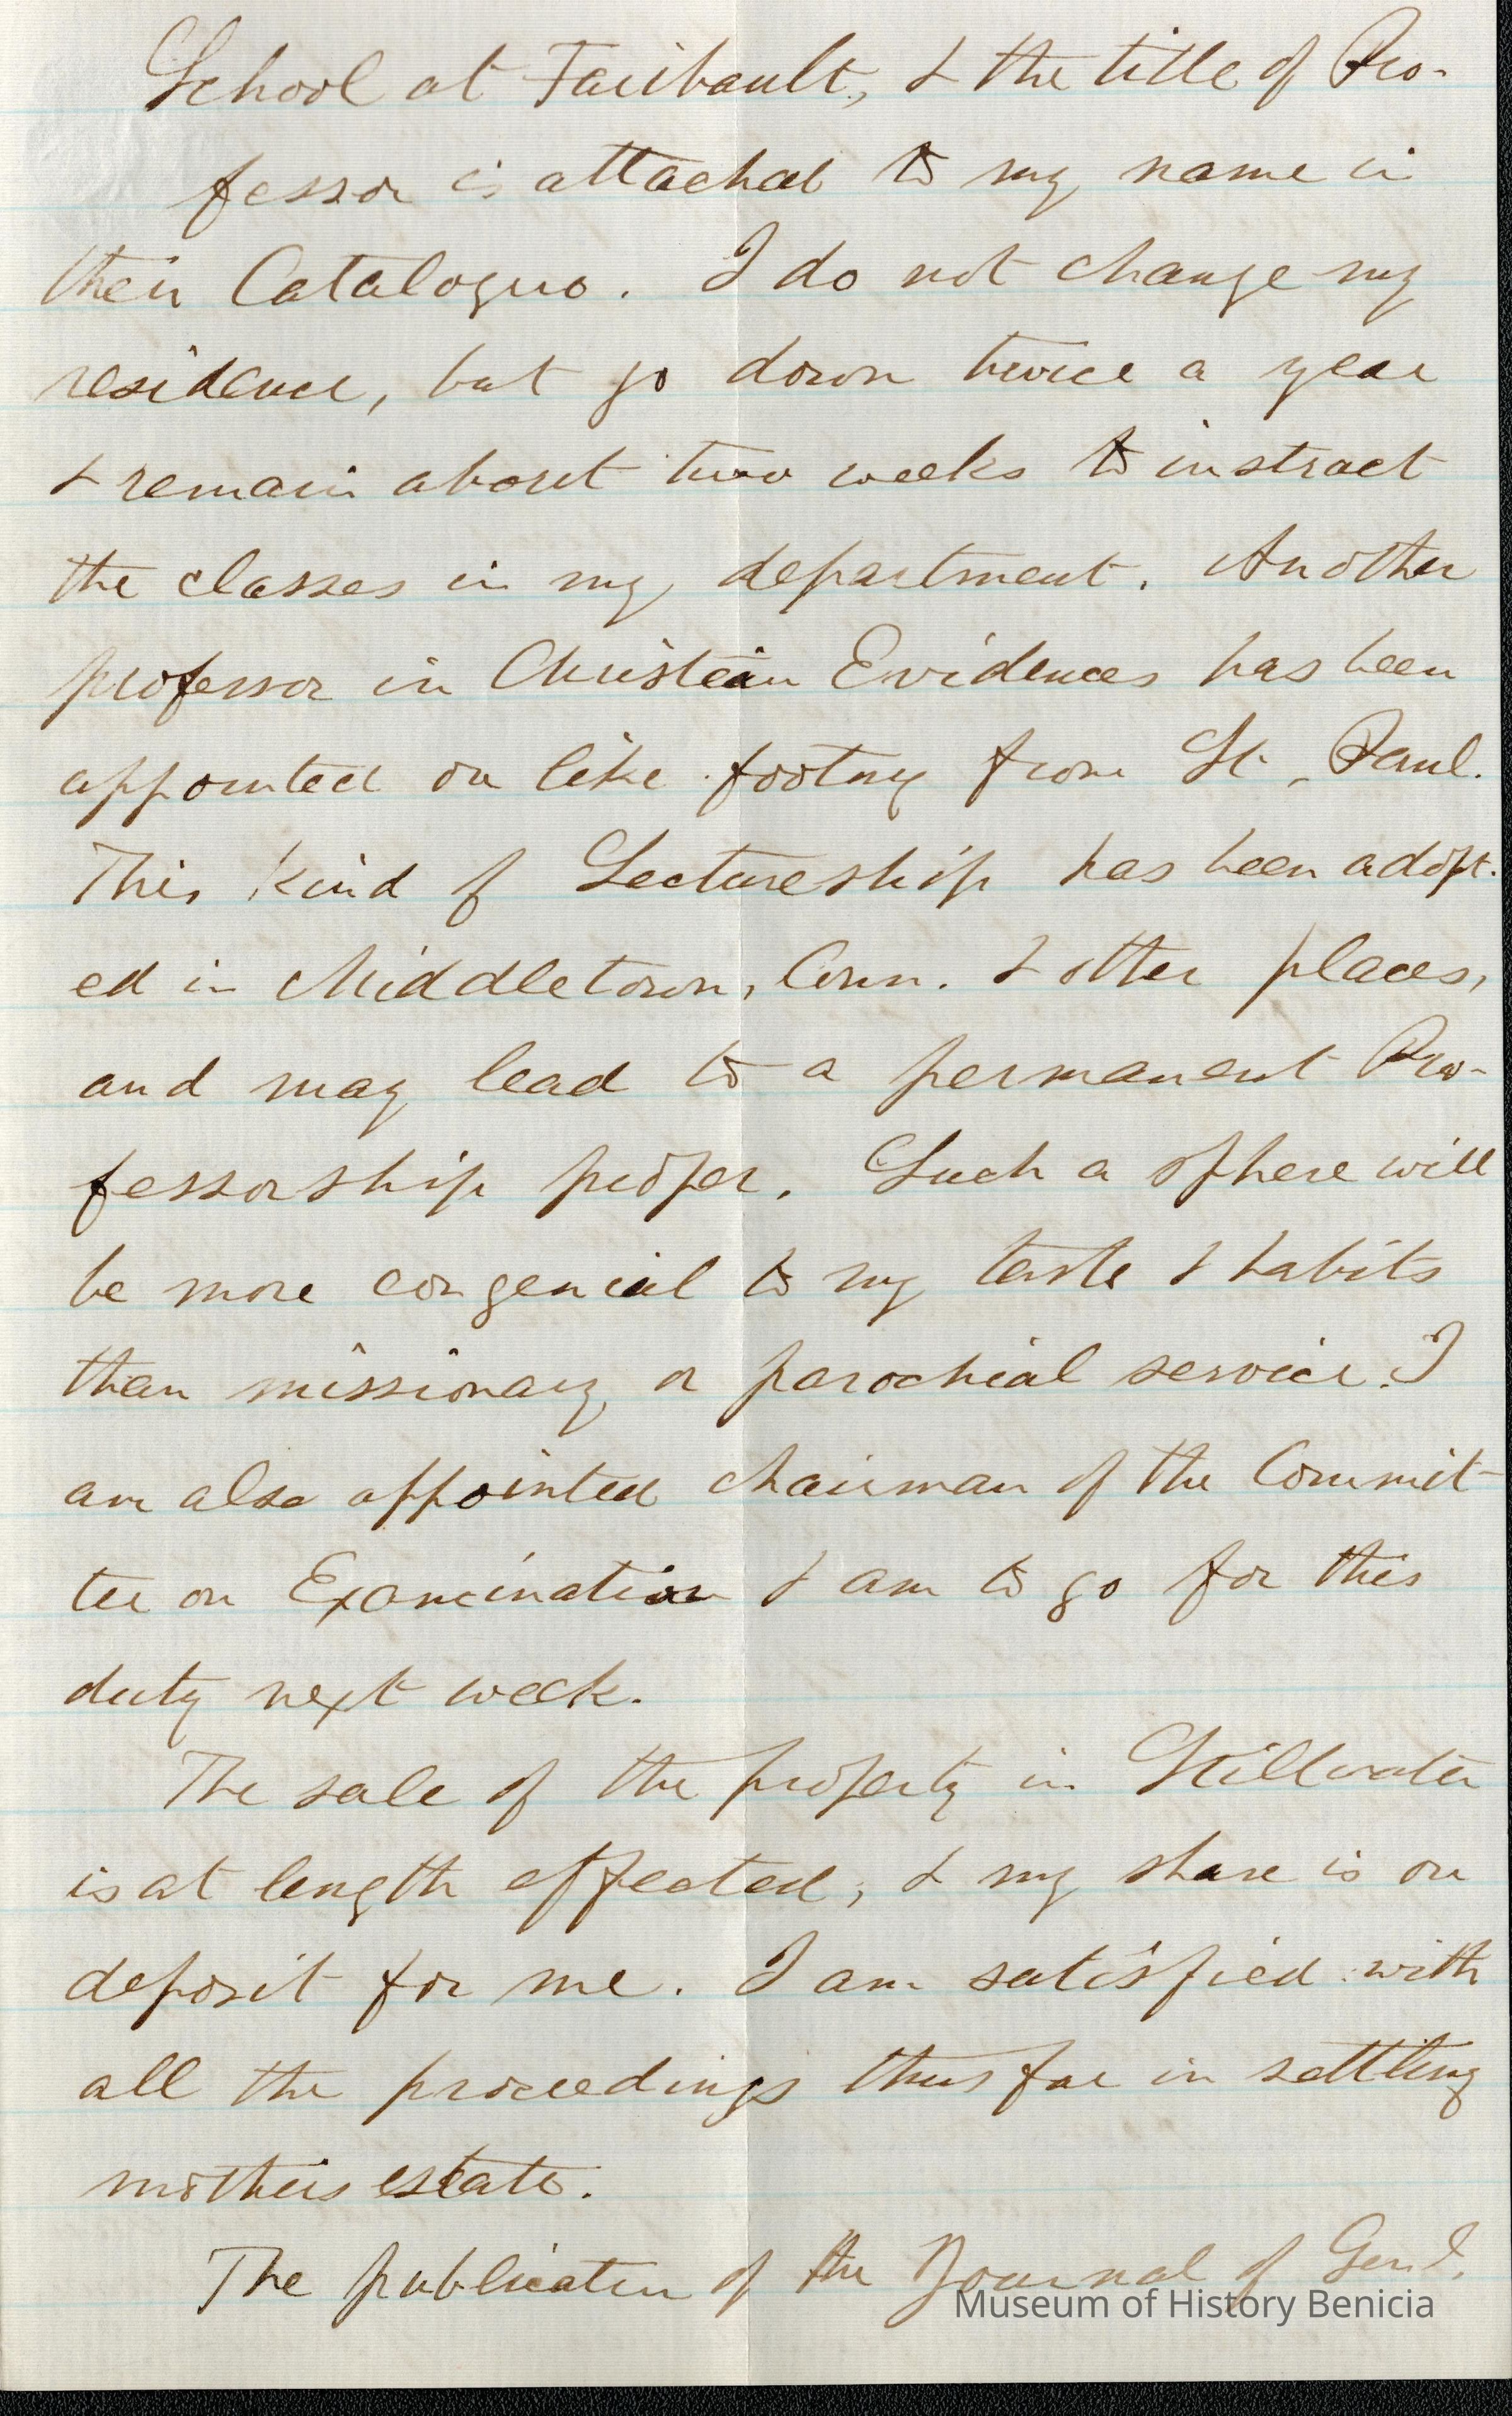 School at Faribault, & the title of Pro-
fessor is attached to my name in
their Catalogue. I do not change my
residence, but go down twice a year
& remain about two weeks to instruct
the classes in my department. Another
professor in Christian Evidences has been
appointed on like footing from St. Paul.
This kind of Lectureship has been adopt-
ed in Middletown, Conn. & other places,
and may lead to a permanent Pro-
fessorship proper. Such a sphere will
be more congenial to my taste & habits
than missionary or parochial service. I
am also appointed chairman of the Commit-
tee on Examination & am to go for this
duty next week.
The sale of the property in Stillwater
is at length effected, & my share is on
deposit for me. I am satisfied with
all the proceedings thus far in settling
mothers estate.
The publication of the Journal of Genl.
Museum of History Benicia